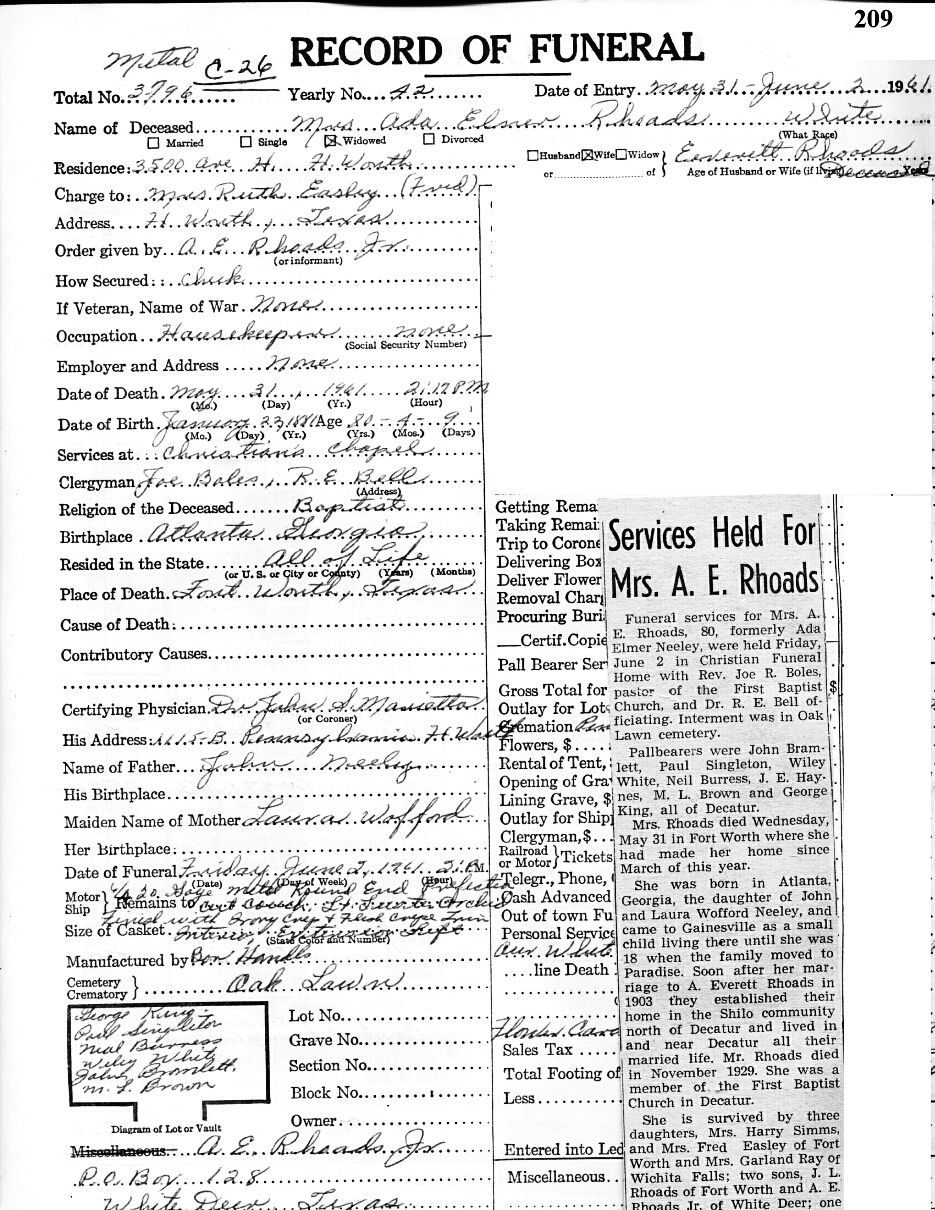 209
Metal C-26
RECORD OF FUNERAL
Total No. 3796 Yearly No. 42 Date of Entry May 31 - June 2 1961
Name of Deceased Mrs Ada Elmer Rhoads White
(What Race)
☐ Married ☐ Single ☒ Widowed ☐ Divorced
Residence: 3500 Ave H. Ft. Worth ☐Husband☒Wife☐Widow of Everett Rhoads
or of Age of Husband or Wife (if living) Deceased Years
Charge to: Mrs Ruth Easley (Fred)
Address Ft Worth, Texas
Order given by A. E. Rhoads Jr.
(or informant)
How Secured: Check
If Veteran, Name of War None
Occupation Housekeeper none
(Social Security Number)
Employer and Address None
Date of Death May 31, 1961 2:12 P.M.
(Mo.) (Day) (Yr.) (Hour)
Date of Birth January 22, 1881 Age 80 - 4 - 9
(Mo.) (Day) (Yr.) (Yrs.) (Mos.) (Days)
Services at Christian's Chapel
Clergyman Joe Boles, R. E. Bell
(Address)
Religion of the Deceased Baptist
Birthplace Atlanta Georgia
Resided in the State All of Life
(or U. S. or City or County) (Years) (Months)
Place of Death Fort Worth, Texas
Cause of Death:
Contributory Causes
Certifying Physician Dr. John S.
(or Coroner)
His Address: Ft. Worth
Name of Father John Neeley
His Birthplace
Maiden Name of Mother Laura Wofford
Her Birthplace:
Date of Funeral Friday June 2, 1961 2 P.M.
(Date) (Day of Week) (Hour)
Motor Ship } Remains to
20 Gage Metal Round End
Finish with Ivory Crep
Size of Casket Interior,
(State Color and Number)
Manufactured by
Cemetery Crematory } Oak Lawn
George King
Paul Singleton
Neal Burness
Wiley White
John Bramlett
M. L. Brown
Diagram of Lot or Vault
Lot No.
Grave No.
Section No.
Block No.
Owner
Miscellaneous A. E. Rhoads Jr
P.O. Box 128
White Deer Texas
Getting Rema
Taking Remai
Trip to Corone
Delivering Box
Deliver Flower
Removal Charg
Procuring Buri
Certif. Copie
Pall Bearer Ser
Gross Total for
Outlay for Lot
Cremation
Flowers, $
Rental of Tent,
Opening of Gra
Lining Grave, $
Outlay for Ship
Clergyman, $
Railroad or Motor } Tickets
Telegr., Phone,
Cash Advanced
Out of town Fu
Personal Service
line Death
Flower
Sales Tax
Total Footing of
Less
Entered into Led
Miscellaneous
$
Services Held For
Mrs. A. E. Rhoads
Funeral services for Mrs. A.
E. Rhoads, 80, formerly Ada
Elmer Neeley, were held Friday,
June 2 in Christian Funeral
Home with Rev. Joe R. Boles,
pastor of the First Baptist
Church, and Dr. R. E. Bell of-
ficiating. Interment was in Oak
Lawn cemetery.
Pallbearers were John Bram-
lett, Paul Singleton, Wiley
White, Neil Burress, J. E. Hay-
nes, M. L. Brown and George
King, all of Decatur.
Mrs. Rhoads died Wednesday,
May 31 in Fort Worth where she
had made her home since
March of this year.
She was born in Atlanta,
Georgia, the daughter of John
and Laura Wofford Neeley, and
came to Gainesville as a small
child living there until she was
18 when the family moved to
Paradise. Soon after her mar-
riage to A. Everett Rhoads in
1903 they established their
home in the Shilo community
north of Decatur and lived in
and near Decatur all their
married life. Mr. Rhoads died
in November 1929. She was a
member of the First Baptist
Church in Decatur.
She is survived by three
daughters, Mrs. Harry Simms,
and Mrs. Fred Easley of Fort
Worth and Mrs. Garland Ray of
Wichita Falls; two sons, J. L.
Rhoads of Fort Worth and A. E.
Rhoads Jr. of White Deer; one